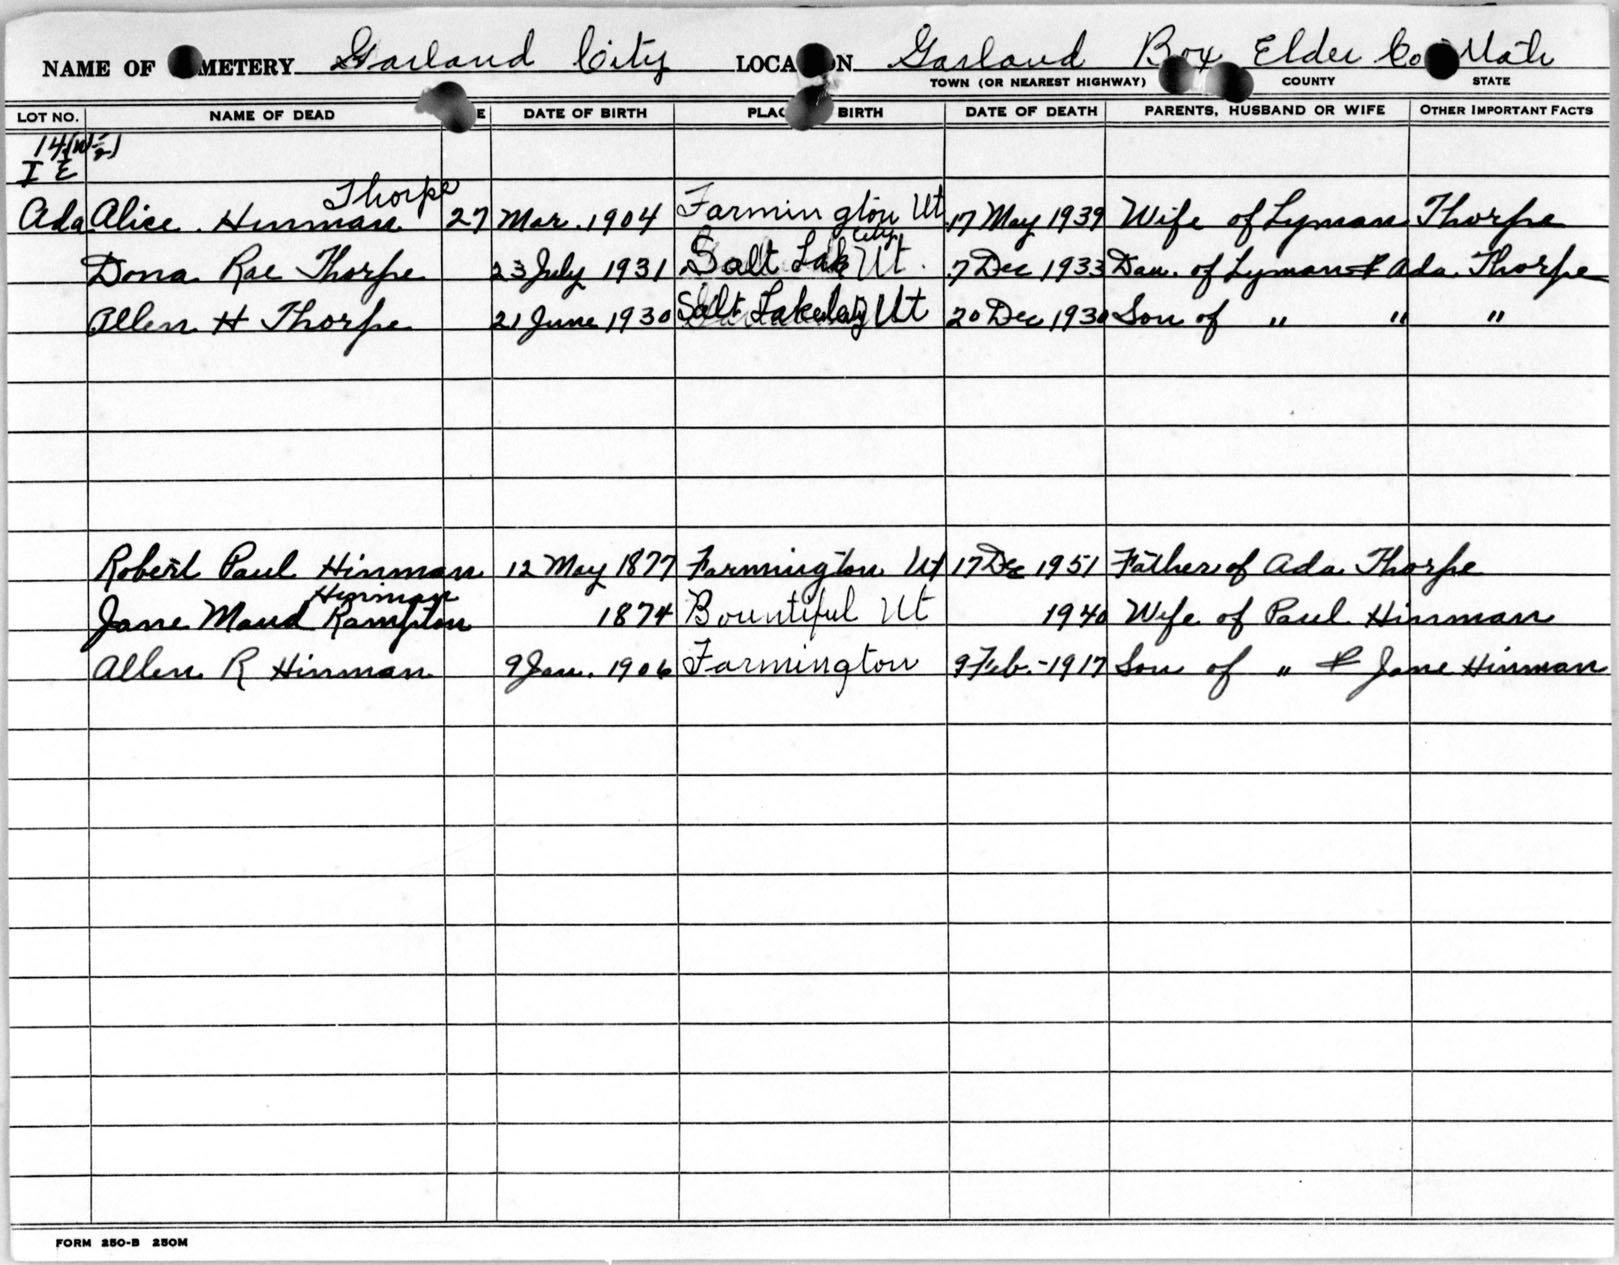 NAME OF METERY Garland City LOCA ON Garland Box Elder Co Utah
TOWN (OR NEAREST HIGHWAY) COUNTY STATE
LOT NO. NAME OF DEAD E DATE OF BIRTH PLAC BIRTH DATE OF DEATH PARENTS, HUSBAND OR WIFE OTHER IMPORTANT FACTS
14 (W 1/2)
I E
Thorpe
Ada Alice Hinman 27 Mar. 1904 Farmington Ut 17 May 1939 Wife of Lyman Thorpe
City
Dona Rae Thorpe 23 July 1931 Salt Lake Ut. 7 Dec 1933 Dau. of Lyman & Ada Thorpe
Allen H Thorpe 21 June 1930 Salt Lake City Ut 20 Dec 1930 Son of " " "
Robert Paul Hinman 12 May 1877 Farmington Ut 17 Dec 1951 Father of Ada Thorpe
Hinman
Jane Maud Rampton 1874 Bountiful Ut 1940 Wife of Paul Hinman
Allen R Hinman 9 Jan. 1906 Farmington 9 Feb.-1917 Son of " & Jane Hinman
FORM 250-B 250M